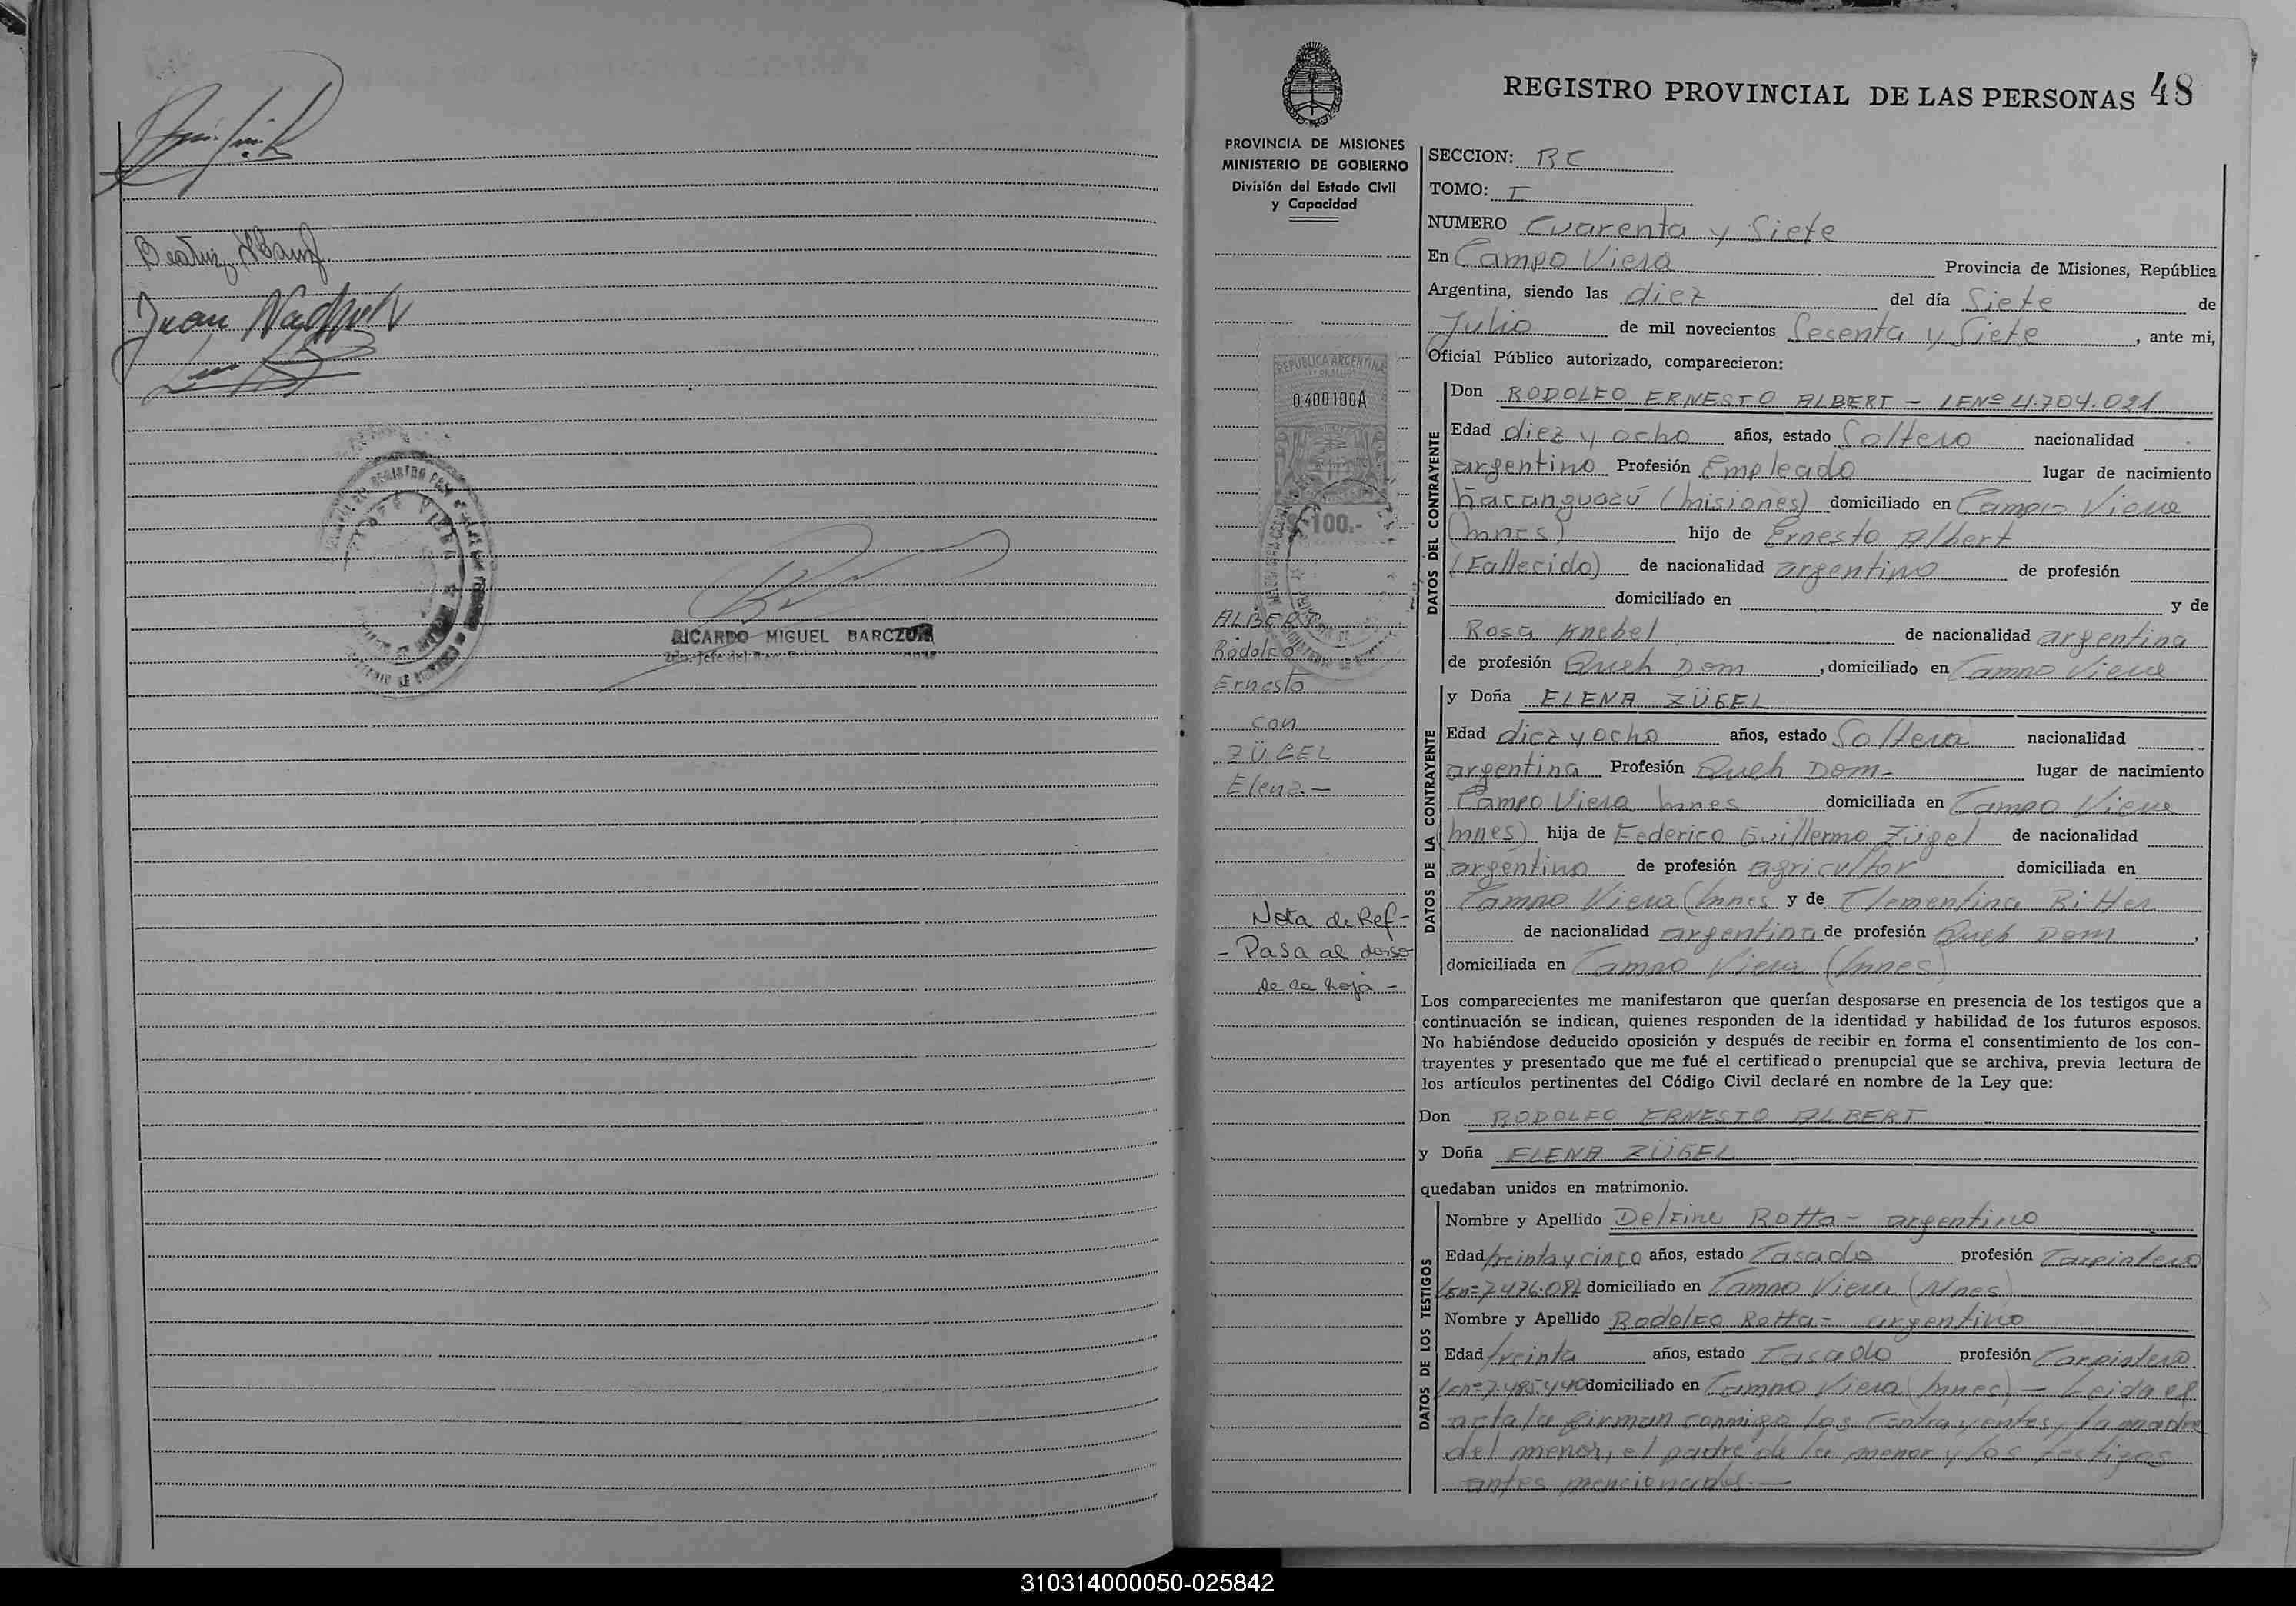 Beatriz
Juan
RICARDO MIGUEL BARCZUK
REGISTRO PROVINCIAL DE LAS PERSONAS 48
PROVINCIA DE MISIONES
MINISTERIO DE GOBIERNO
División del Estado Civil
y Capacidad
REPUBLICA ARGENTINA
0400100A
100.-
ALBERT
Rodolfo
Ernesto
con
ZÜGEL
Elena.-
Nota de Ref-
- Pasa al dorso
de la hoja -
SECCION: RC
TOMO: I
NUMERO Cuarenta y Siete
En Campo Viera Provincia de Misiones, República
Argentina, siendo las diez del día Siete de
Julio de mil novecientos Sesenta y Siete, ante mi,
Oficial Público autorizado, comparecieron:
DATOS DEL CONTRAYENTE
Don RODOLFO ERNESTO ALBERT - LENº 4.704.021
Edad diez y ocho años, estado Soltero nacionalidad
argentino Profesión Empleado lugar de nacimiento
(misiones) domiciliado en Campo Viera
(mnes) hijo de Ernesto Albert
(Fallecido) de nacionalidad argentino de profesión
domiciliado en y de
Rosa Knebel de nacionalidad argentina
de profesión Queh Dom, domiciliado en Campo Viera
DATOS DE LA CONTRAYENTE
y Doña ELENA ZÜGEL
Edad diez y ocho años, estado Soltera nacionalidad
argentina Profesión Queh Dom- lugar de nacimiento
Campo Viera mnes domiciliada en Campo Viera
(mnes) hija de Federico Guillermo Zügel de nacionalidad
argentino de profesión agricultor domiciliada en
Campo Viera (mnes y de Clementina Ritter
de nacionalidad argentina de profesión Queh Dom,
domiciliada en Campo Viera (mnes)
Los comparecientes me manifestaron que querían desposarse en presencia de los testigos que a
continuación se indican, quienes responden de la identidad y habilidad de los futuros esposos.
No habiéndose deducido oposición y después de recibir en forma el consentimiento de los con-
trayentes y presentado que me fué el certificado prenupcial que se archiva, previa lectura de
los artículos pertinentes del Código Civil declaré en nombre de la Ley que:
Don RODOLFO ERNESTO ALBERT
y Doña ELENA ZÜGEL
quedaban unidos en matrimonio.
DATOS DE LOS TESTIGOS
Nombre y Apellido Delfino Rotta - argentino
Edad treinta y cinco años, estado Casado profesión Carpintero
domiciliado en Campo Viera (Mnes)
Nombre y Apellido Rodolfo Rotta - argentino
Edad treinta años, estado Casado profesión Carpintero
LEnº 7.485.440 domiciliado en Campo Viera (mnes) - Leida el
acta la firman conmigo los contrayentes, la madre
del menor, el padre de la menor y los testigos
antes mencionados.-
310314000050-025842